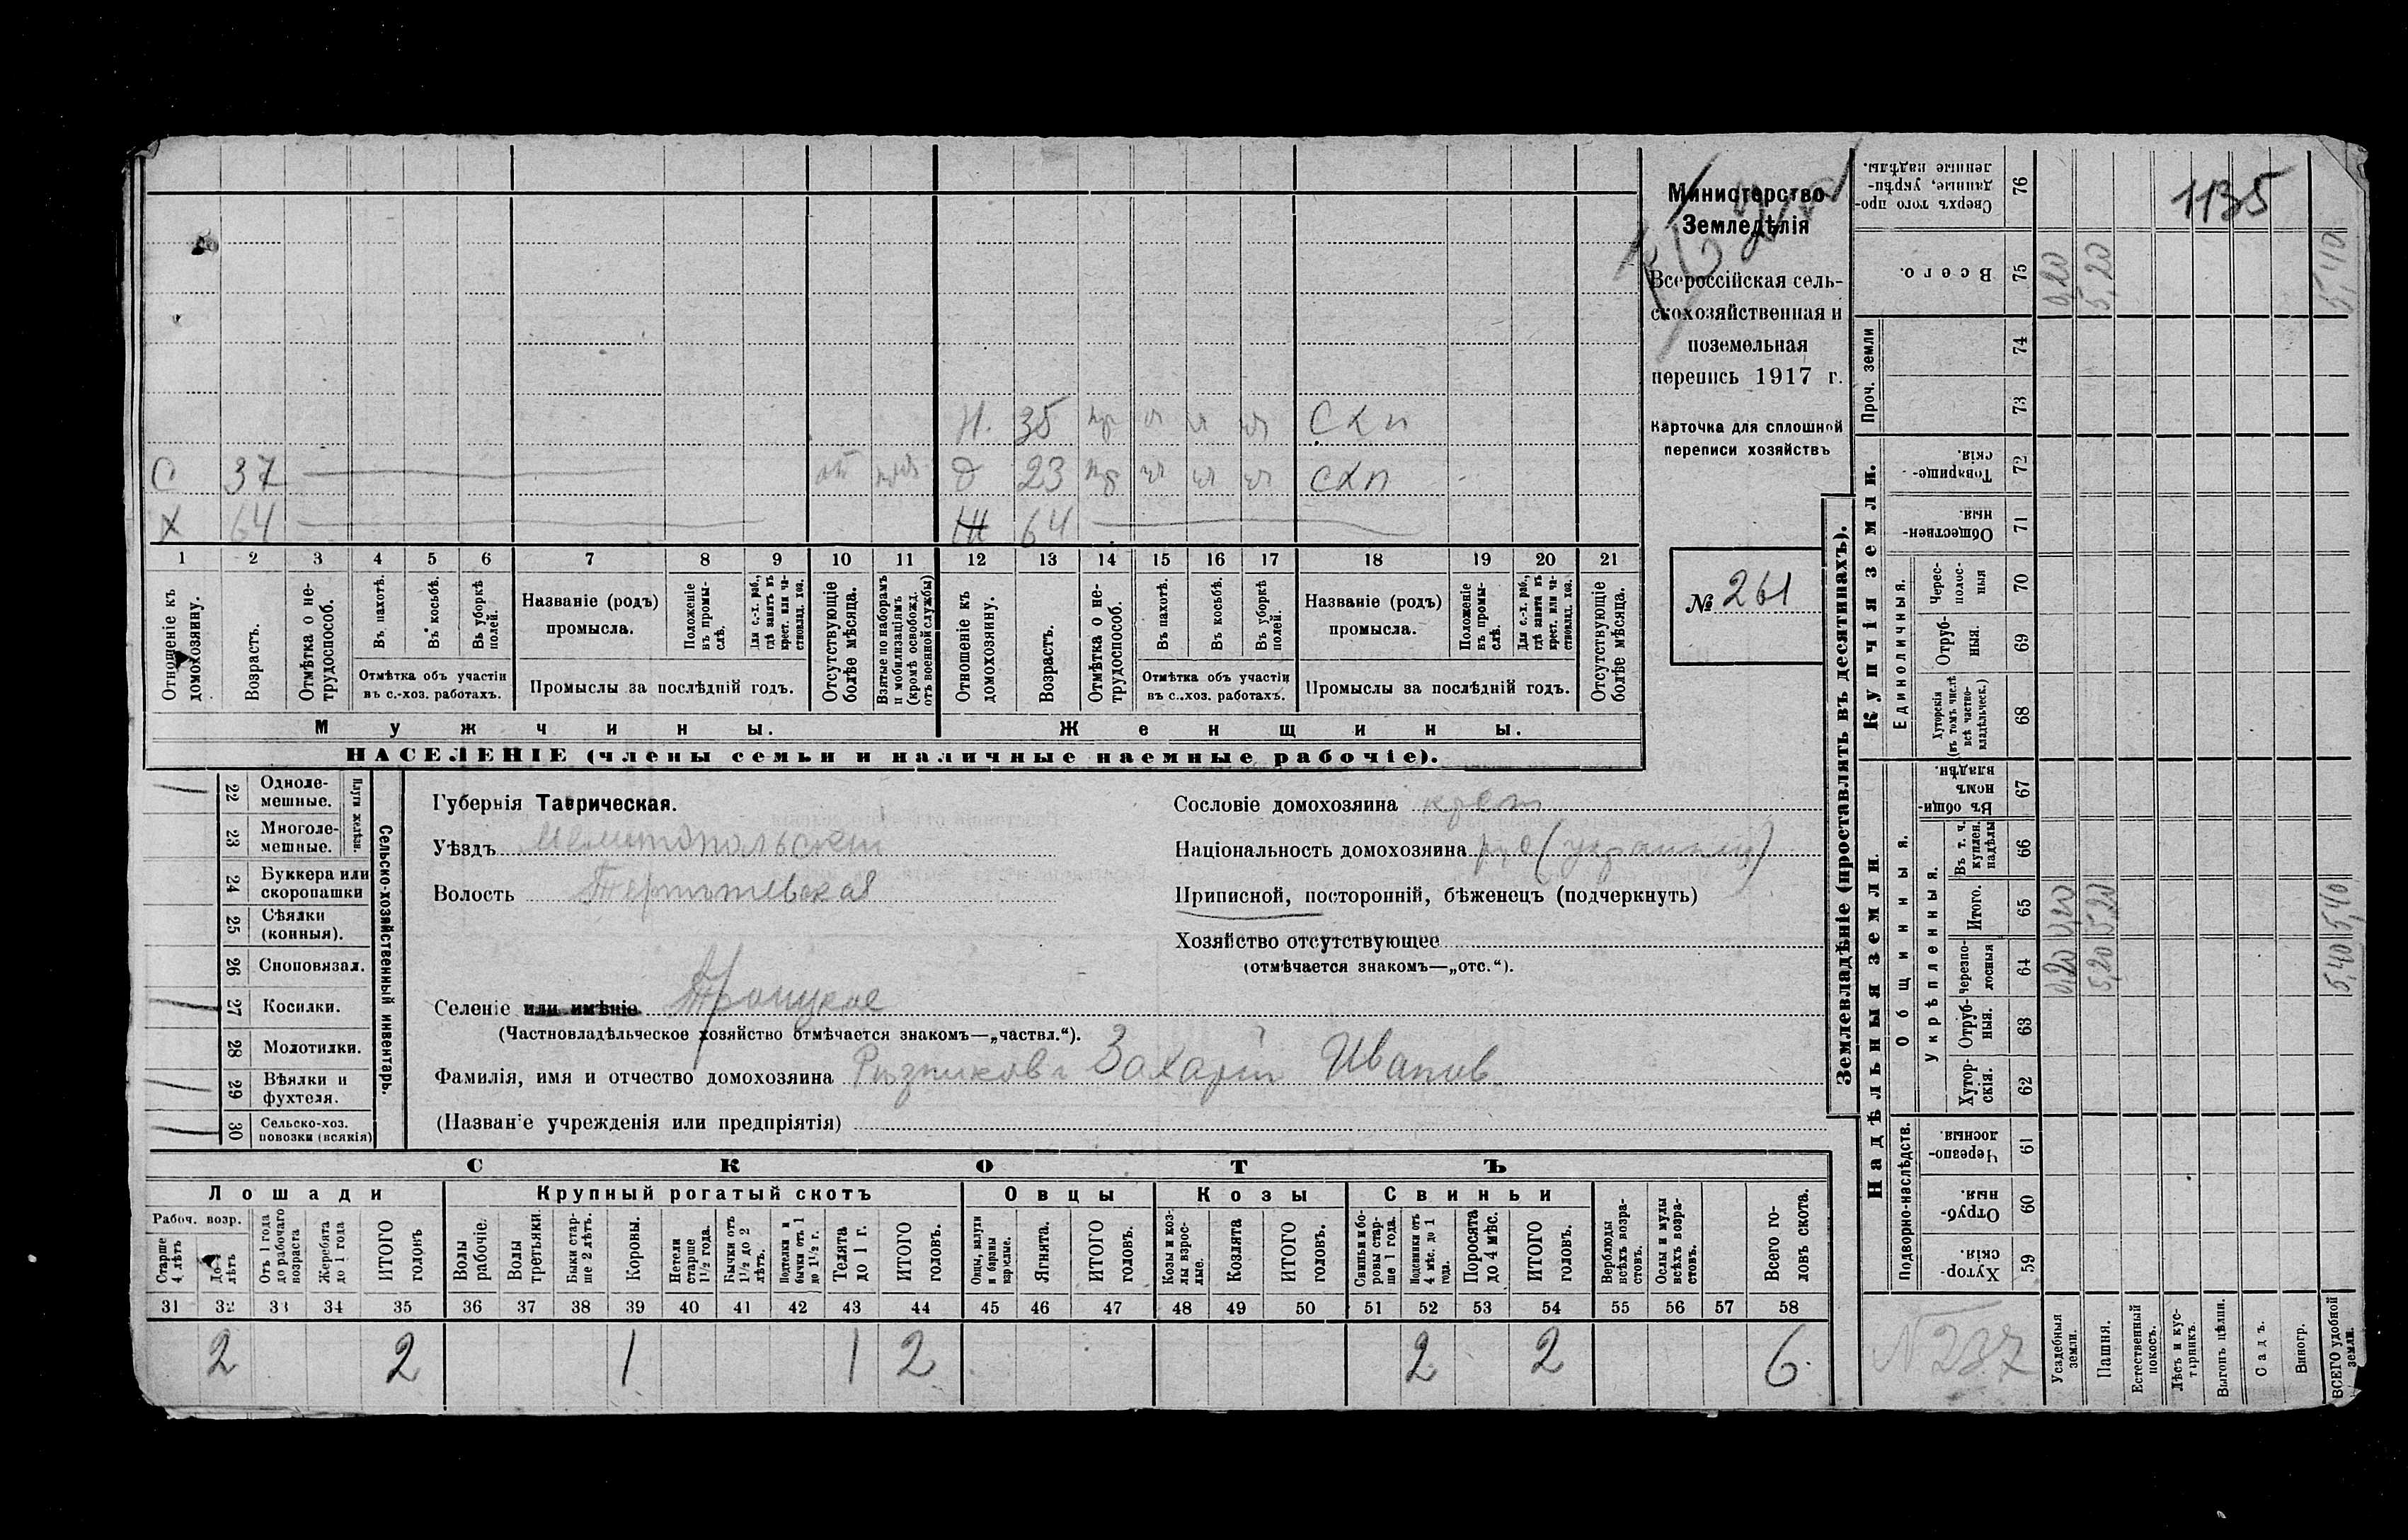 Министерство
Земледѣлія
Всероссійская сель-
скохозяйственная и
поземельная
перепись 1917 г.
Карточка для сплошной
переписи хозяйствъ
№ 261
Н. 35 СХП
С 37 23 СХП
Х 64 64
1 2 3 4 5 6 7 8 9 10 11 12 13 14 15 16 17 18 19 20 21
Отношеніе къ домохозяину.
Возрастъ.
Отмѣтка о не-трудоспособ.
Въ пахотѣ.
Въ косьбѣ.
Въ уборкѣ полей.
Отмѣтка объ участіи въ с.-хоз. работахъ.
Названіе (родъ) промысла.
Положеніе въ промы-слѣ.
Для с.-х. раб., гдѣ занятъ въ крест. или ча-стновлад. хоз.
Промыслы за послѣдній годъ.
Отсутствующіе болѣе мѣсяца.
Взятые по наборамъ и мобилизаціямъ (кромѣ освобожд. отъ военной службы)
Отношеніе къ домохозяину.
Возрастъ.
Отмѣтка о не-трудоспособ.
Въ пахотѣ.
Въ косьбѣ.
Въ уборкѣ полей.
Отмѣтка объ участіи въ с.-хоз. работахъ.
Названіе (родъ) промысла.
Положеніе въ промы-слѣ.
Для с.-х. раб., гдѣ занята въ крест. или ча-стновлад. хоз.
Промыслы за послѣдній годъ.
Отсутствующіе болѣе мѣсяца.
Мужчины.
Женщины.
НАСЕЛЕНІЕ (члены семьи и наличные наемные рабочіе).
22 Одноле-мешные.
23 Многоле-мешные.
Плуги желѣзн.
24 Буккера или скоропашки
25 Сѣялки (конныя).
26 Сноповязал.
27 Косилки.
28 Молотилки.
29 Вѣялки и фухтеля.
30 Сельско-хоз. повозки (всякія)
Сельско-хозяйственный инвентарь.
Губернія Таврическая.
Уѣздъ Мелитопольскій
Волость
Селеніе или имѣніе Троицкое
(Частновладѣльческое хозяйство отмѣчается знакомъ—„частвл.“).
Фамилія, имя и отчество домохозяина Рѣзниковъ Захарій Иванов
(Названіе учрежденія или предпріятія)
Сословіе домохозяина крест
Національность домохозяина рус (украинец)
Приписной, посторонній, бѣженецъ (подчеркнуть)
Хозяйство отсутствующее
(отмѣчается знакомъ—„отс.“).
СКОТЪ
Лошади
Рабоч. возр.
Старше 4 лѣтъ
До 4 лѣтъ
Отъ 1 года до рабочаго возраста
Жеребята до 1 года
ИТОГО головъ
Крупный рогатый скотъ
Волы рабочіе.
Волы третьяки.
Быки стар-ше 2 лѣтъ.
Коровы.
Нетели старше 1½ года.
Бычки отъ 1½ до 2 лѣтъ.
Подтелки и бычки отъ 1 до 1½ г.
Телята до 1 г.
ИТОГО головъ.
Овцы
Овцы, валухи и бараны взрослые.
Ягнята.
ИТОГО головъ.
Козы
Козы и коз-лы взрос-лые.
Козлята
ИТОГО головъ.
Свиньи
Свиньи и бо-ровы стар-ше 1 года.
Подсвинки отъ 4 мѣс. до 1 года.
Поросята до 4 мѣс.
ИТОГО головъ.
Верблюды всѣхъ возра-стовъ.
Ослы и мулы всѣхъ возра-стовъ.
Всего го-ловъ скота.
31 32 33 34 35 36 37 38 39 40 41 42 43 44 45 46 47 48 49 50 51 52 53 54 55 56 57 58
2 2 1 1 2 2 2 6
Землевладѣніе (проставлять въ десятинахъ).
Купчія земли.
Надѣльныя земли.
Сверхъ того про-данные, укрѣп-ленные надѣлы. 76
Всего. 75 0,20 5,20 5,40
Проч. земли 74 73
Товарище-скія. 72
Обществен-ныя. 71
Единоличныя.
Черес-полос-ныя 70
Отруб-ныя. 69
Хуторскія (въ томъ числѣ всѣ частно-владѣльческ.) 68
Общинныя.
Въ общи-номъ владѣн. 67
Укрѣпленныя.
Въ т. ч. куплен. надѣлы 66
Итого. 65 0,20 5,20 5,40
Черезпо-лосныя 64 0,20 5,20 5,40
Отруб-ныя. 63
Хутор-скія. 62
Подворно-наслѣдств.
Черезпо-лосныя. 61
Отруб-ныя. 60
Хутор-скія. 59
1135
N 237
Усадебныя земли.
Пашня.
Естественный покосъ.
Лѣсъ и кус-тарникъ.
Выгонъ цѣлин.
Садъ.
Виногр.
ВСЕГО удобной земли.